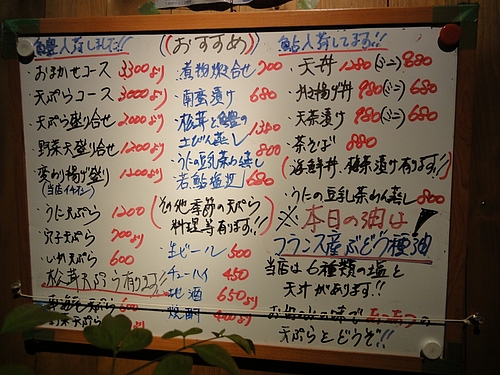 鱧入荷しました!!
(おすすめ)
鮎入荷してます!!
・おまかせコース 3300より
・天ぷらコース 3000より
・天ぷら盛り合せ 2000より
・野菜天盛り合せ 1200より
・変わり揚げ盛り 1200より
(当店イチオシ)
・うに天ぷら 1200
・穴子天ぷら 700より
・いわし天ぷら 600
松茸天ぷら有ります!!
野菜天ぷら
・煮物炊合せ 700
・南蛮漬け 680
・松茸と鱧の土びん蒸し 1380
・うにの豆乳茶わん蒸し 800
・若鮎塩焼 680
(その他季節の天ぷら
料理等有ります!!)
・生ビール 500
・チューハイ 450
・地酒 650より
・焼酎 400より
・天丼 1280(ミニ)880
・かき揚げ丼 980(ミニ)680
・天茶漬け 980(ミニ)680
・茶そば 880
(海鮮丼、梅茶漬け有ります!!)
・うにの豆乳茶わん蒸し 800
※本日の油は
フランス産ぶどう種油
当店は6種類の塩と
天汁があります!!
お好みの味であつあつの
天ぷらをどうぞ!!